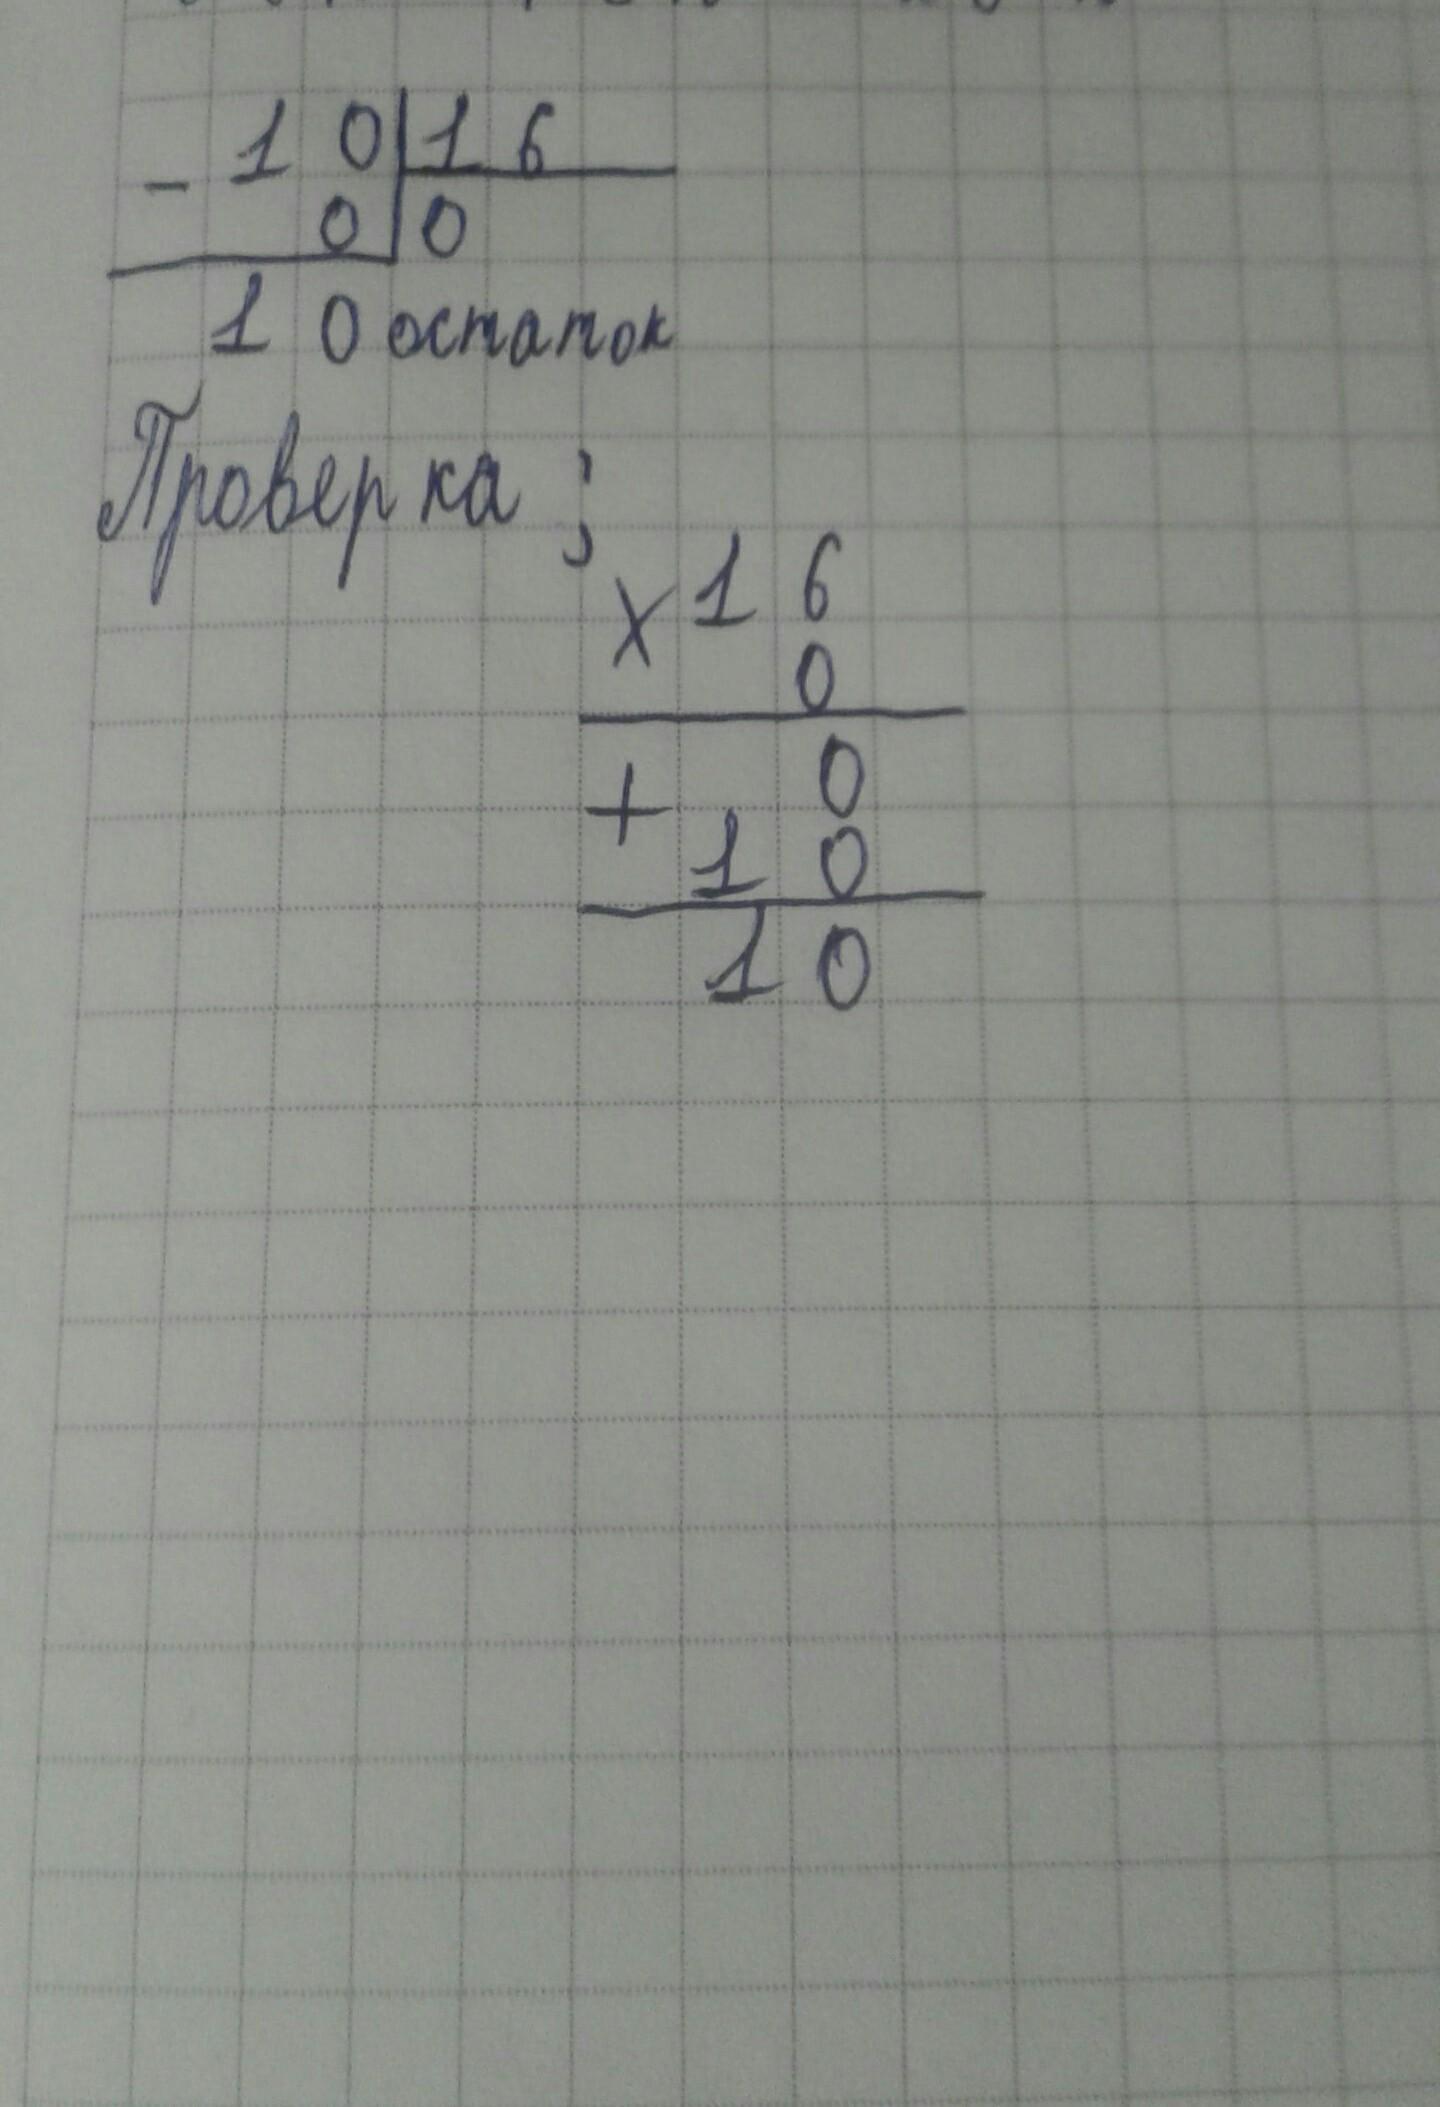 - 10|16
0|0
10 остаток
Проверка :
× 16
0
+ 0
10
10